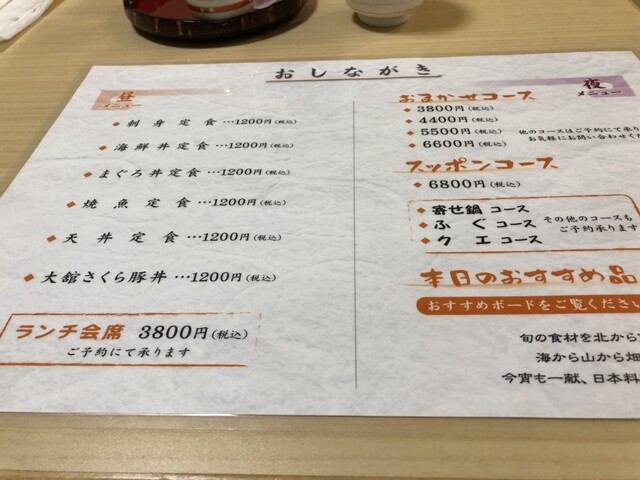 おしながき
昼
メニュー
◆ 刺身定食 …1200円(税込)
◆ 海鮮丼定食 …1200円(税込)
◆ まぐろ丼定食 …1200円(税込)
◆ 焼魚定食 …1200円(税込)
◆ 天丼定食 …1200円(税込)
◆ 大舘さくら豚丼 …1200円(税込)
ランチ会席 3800円(税込)
ご予約にて承ります
夜
メニュー
おまかせコース
◆ 3800円(税込)
◆ 4400円(税込)
◆ 5500円(税込) 他のコースはご予約にて承り
◆ 6600円(税込) お気軽にお問い合わせくだ
スッポンコース
◆ 6800円(税込)
◆ 寄せ鍋 コース
◆ ふぐ コース
◆ クエ コース
その他のコースも
ご予約承ります
本日のおすすめ品
おすすめボードをご覧ください
旬の食材を北から
海から山から畑
今宵も一献、日本料